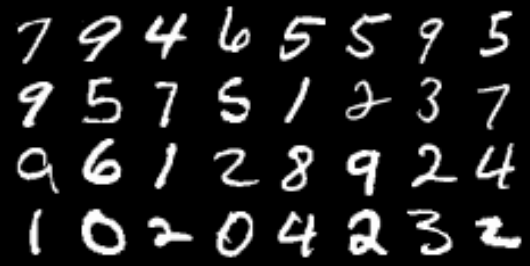 7 9 4 6 5 5 9 5
9 5 7 5 1 2 3 7
9 6 1 2 8 9 2 4
1 0 2 0 4 2 3 2